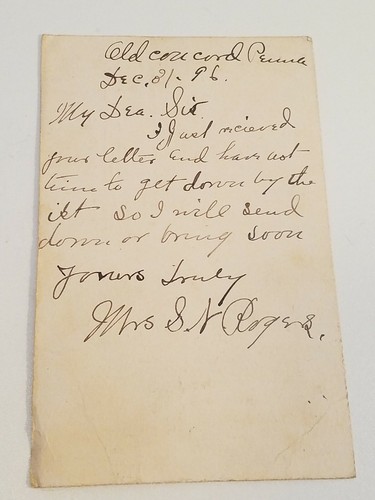 Old concord Penna
Dec. 31. 96.
My Dea. Sir
I Just recieved
your letter and have not
time to get down by the
ist so I will send
down or bring soon
Yours truly
Mrs S N Rogers.